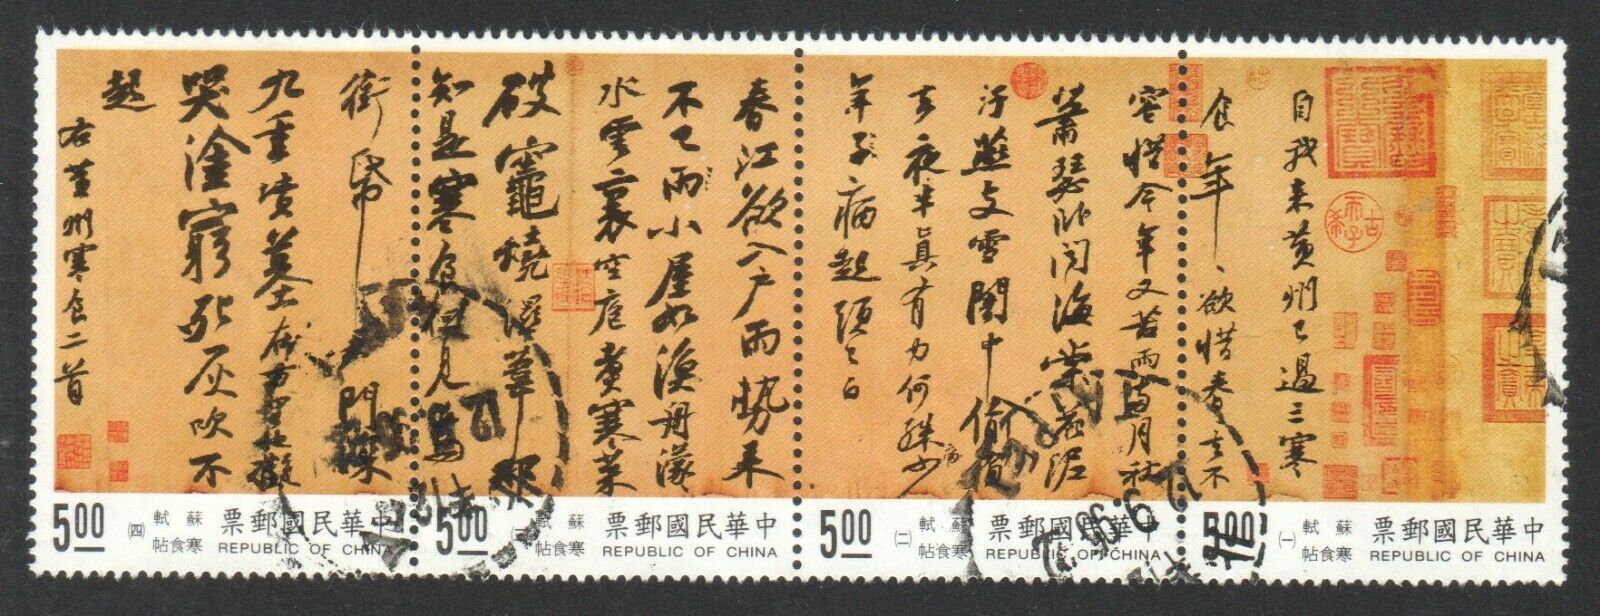 自我来黄州已過三寒
食年、欲惜春春去不
容惜今年又苦雨兩月秋
蕭瑟卧聞海棠花泥
汙燕支雪闇中偷負
去夜半真有力何殊少
年子病起須已白
春江欲入户雨勢来
不已雨小屋如漁舟濛
水雲裏空庖煮寒菜
破竈燒濕葦那
知是寒食但見烏
銜帋
君門深
九重墳墓在万里也擬
哭塗窮死灰吹不
起
右黄州寒食二首
古希天子
中華民國郵票
REPUBLIC OF CHINA
蘇軾
寒食帖
(一)
5.00
中華民國郵票
REPUBLIC OF CHINA
蘇軾
寒食帖
(二)
5.00
中華民國郵票
REPUBLIC OF CHINA
蘇軾
寒食帖
5.00
中華民國郵票
REPUBLIC OF CHINA
蘇軾
寒食帖
(四)
5.00